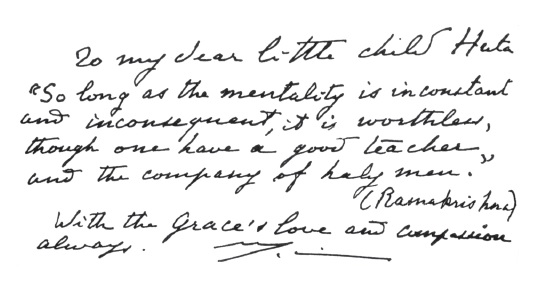 To my dear little child Huta
"So long as the mentality is inconstant
and inconsequent, it is worthless,
though one have a good teacher
and the company of holy men."
(Ramakrishna)
With the Grace's love and compassion
always.